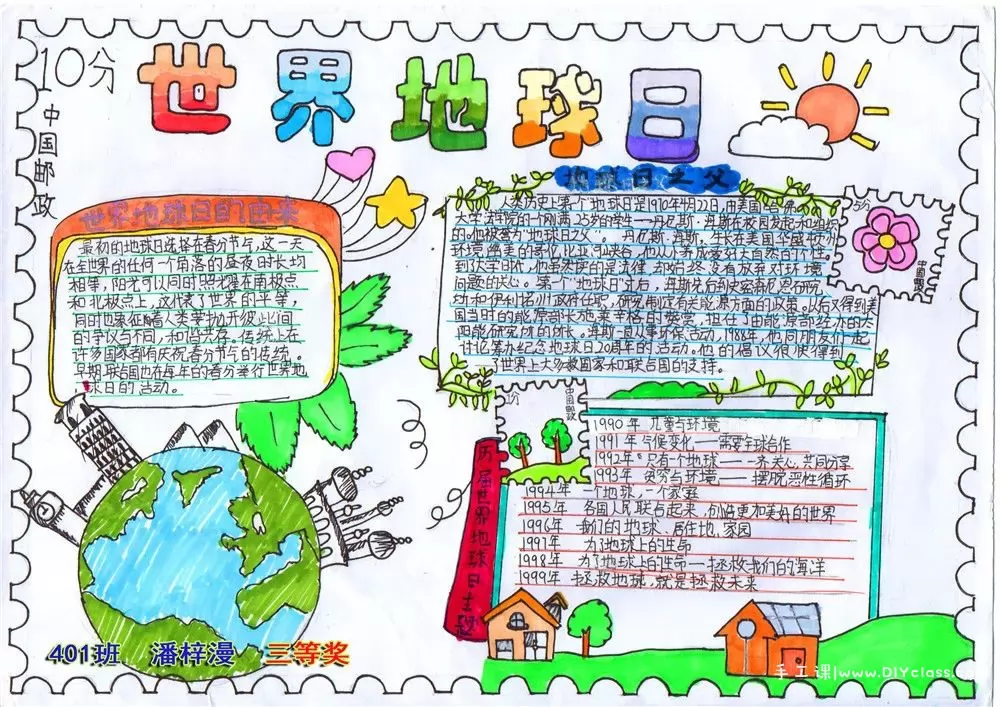 10分
中国邮政
世界地球日
世界地球日的由来
最初的地球日选择在春分节气,这一天
在全世界的任何一个角落的昼夜时长均
相等,阳光可以同时照耀在南极点
和北极点上,这代表了世界的平等,
同时也象征着人类要抛开彼此间
的争议与不同,和谐共存。传统上在
许多国家都有庆祝春分节气的传统。
早期联合国也在每年的春分举行世界地
球日的活动。
地球日之父
5分
中国邮政
人类历史上第一个地球日是1970年4月22日,由美国哈佛
大学法学院的一个刚满25岁的学生——丹尼斯·海斯在校园发起和组织
的。他被誉为"地球日之父"。丹尼斯·海斯,生长在美国华盛顿州
环境绝美的哥伦比亚河峡谷,他从小养成爱好大自然的个性。
到大学时代,他虽然读的是法律,却始终没有放弃对环境
问题的关心。第一个"地球日"过后,海斯先后到史密森尼恩研究
坊和伊利诺州政府任职,研究制定有关能源方面的政策。以后又得到美
国当时的能源部长施莱辛格的赞赏,担任了由能源部经办的太
阳能研究所的所长。海斯一直从事环保活动,1988年,他同朋友们一起
讨论筹办纪念地球日20周年的活动。他的倡议很快得到
了世界上大多数国家和联合国的支持。
中国邮政
历届世界地球日主题
1990年 儿童与环境
1991年 气候变化——需要全球合作
1992年 只有一个地球——一齐关心,共同分享
1993年 贫穷与环境——摆脱恶性循环
1994年 一个地球,一个家庭
1995年 各国人民联合起来,创造更加美好的世界
1996年 我们的地球、居住地、家园
1997年 为了地球上的生命
1998年 为了地球上的生命—拯救我们的海洋
1999年 拯救地球,就是拯救未来
401班 潘梓漫 三等奖
手工课|www.DIYclass.